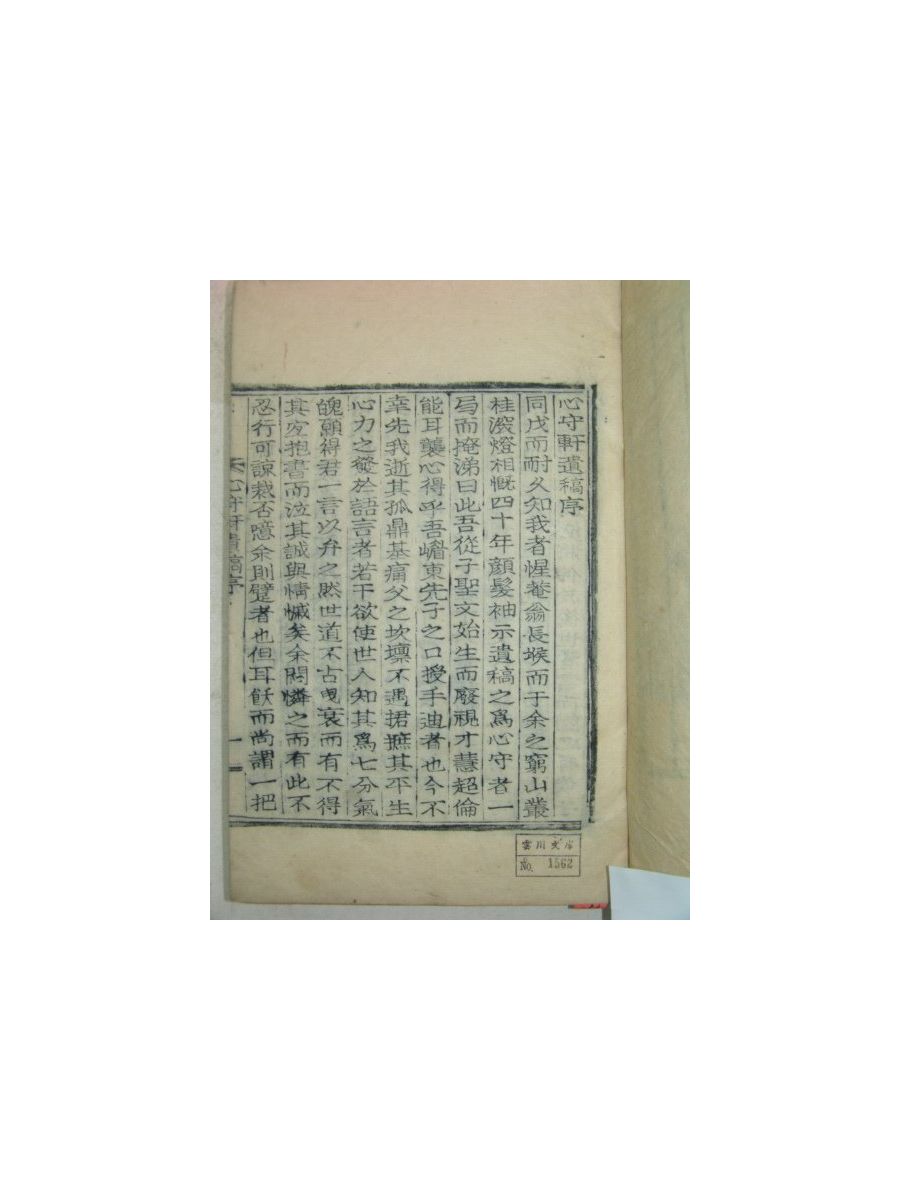 心守軒遺稿序
同戊而耐久知我者惺菴翁長堠而于余之窮山叢
桂深燈相慨四十年顔髮袖示遺稿之爲心守者一
局而掩涕曰此吾從子聖文始生而廢視才慧超倫
能耳襲心得乎吾嶦東先子之口授手迪者也今不
幸先我逝其孤鼎基痛父之坎壈不遇捃摭其平生
心力之發於語言者若干欲使世人知其爲七分氣
魄願得君一言以弁之然世道不古曳衰而有不得
其定抱書而泣其誠與情慽矣余悶憐之而有此不
忍行可諒栽否噫余則躄者也但耳飫而尚謂一把
心守軒遺稿序
一
雲川文庫
No. 1562